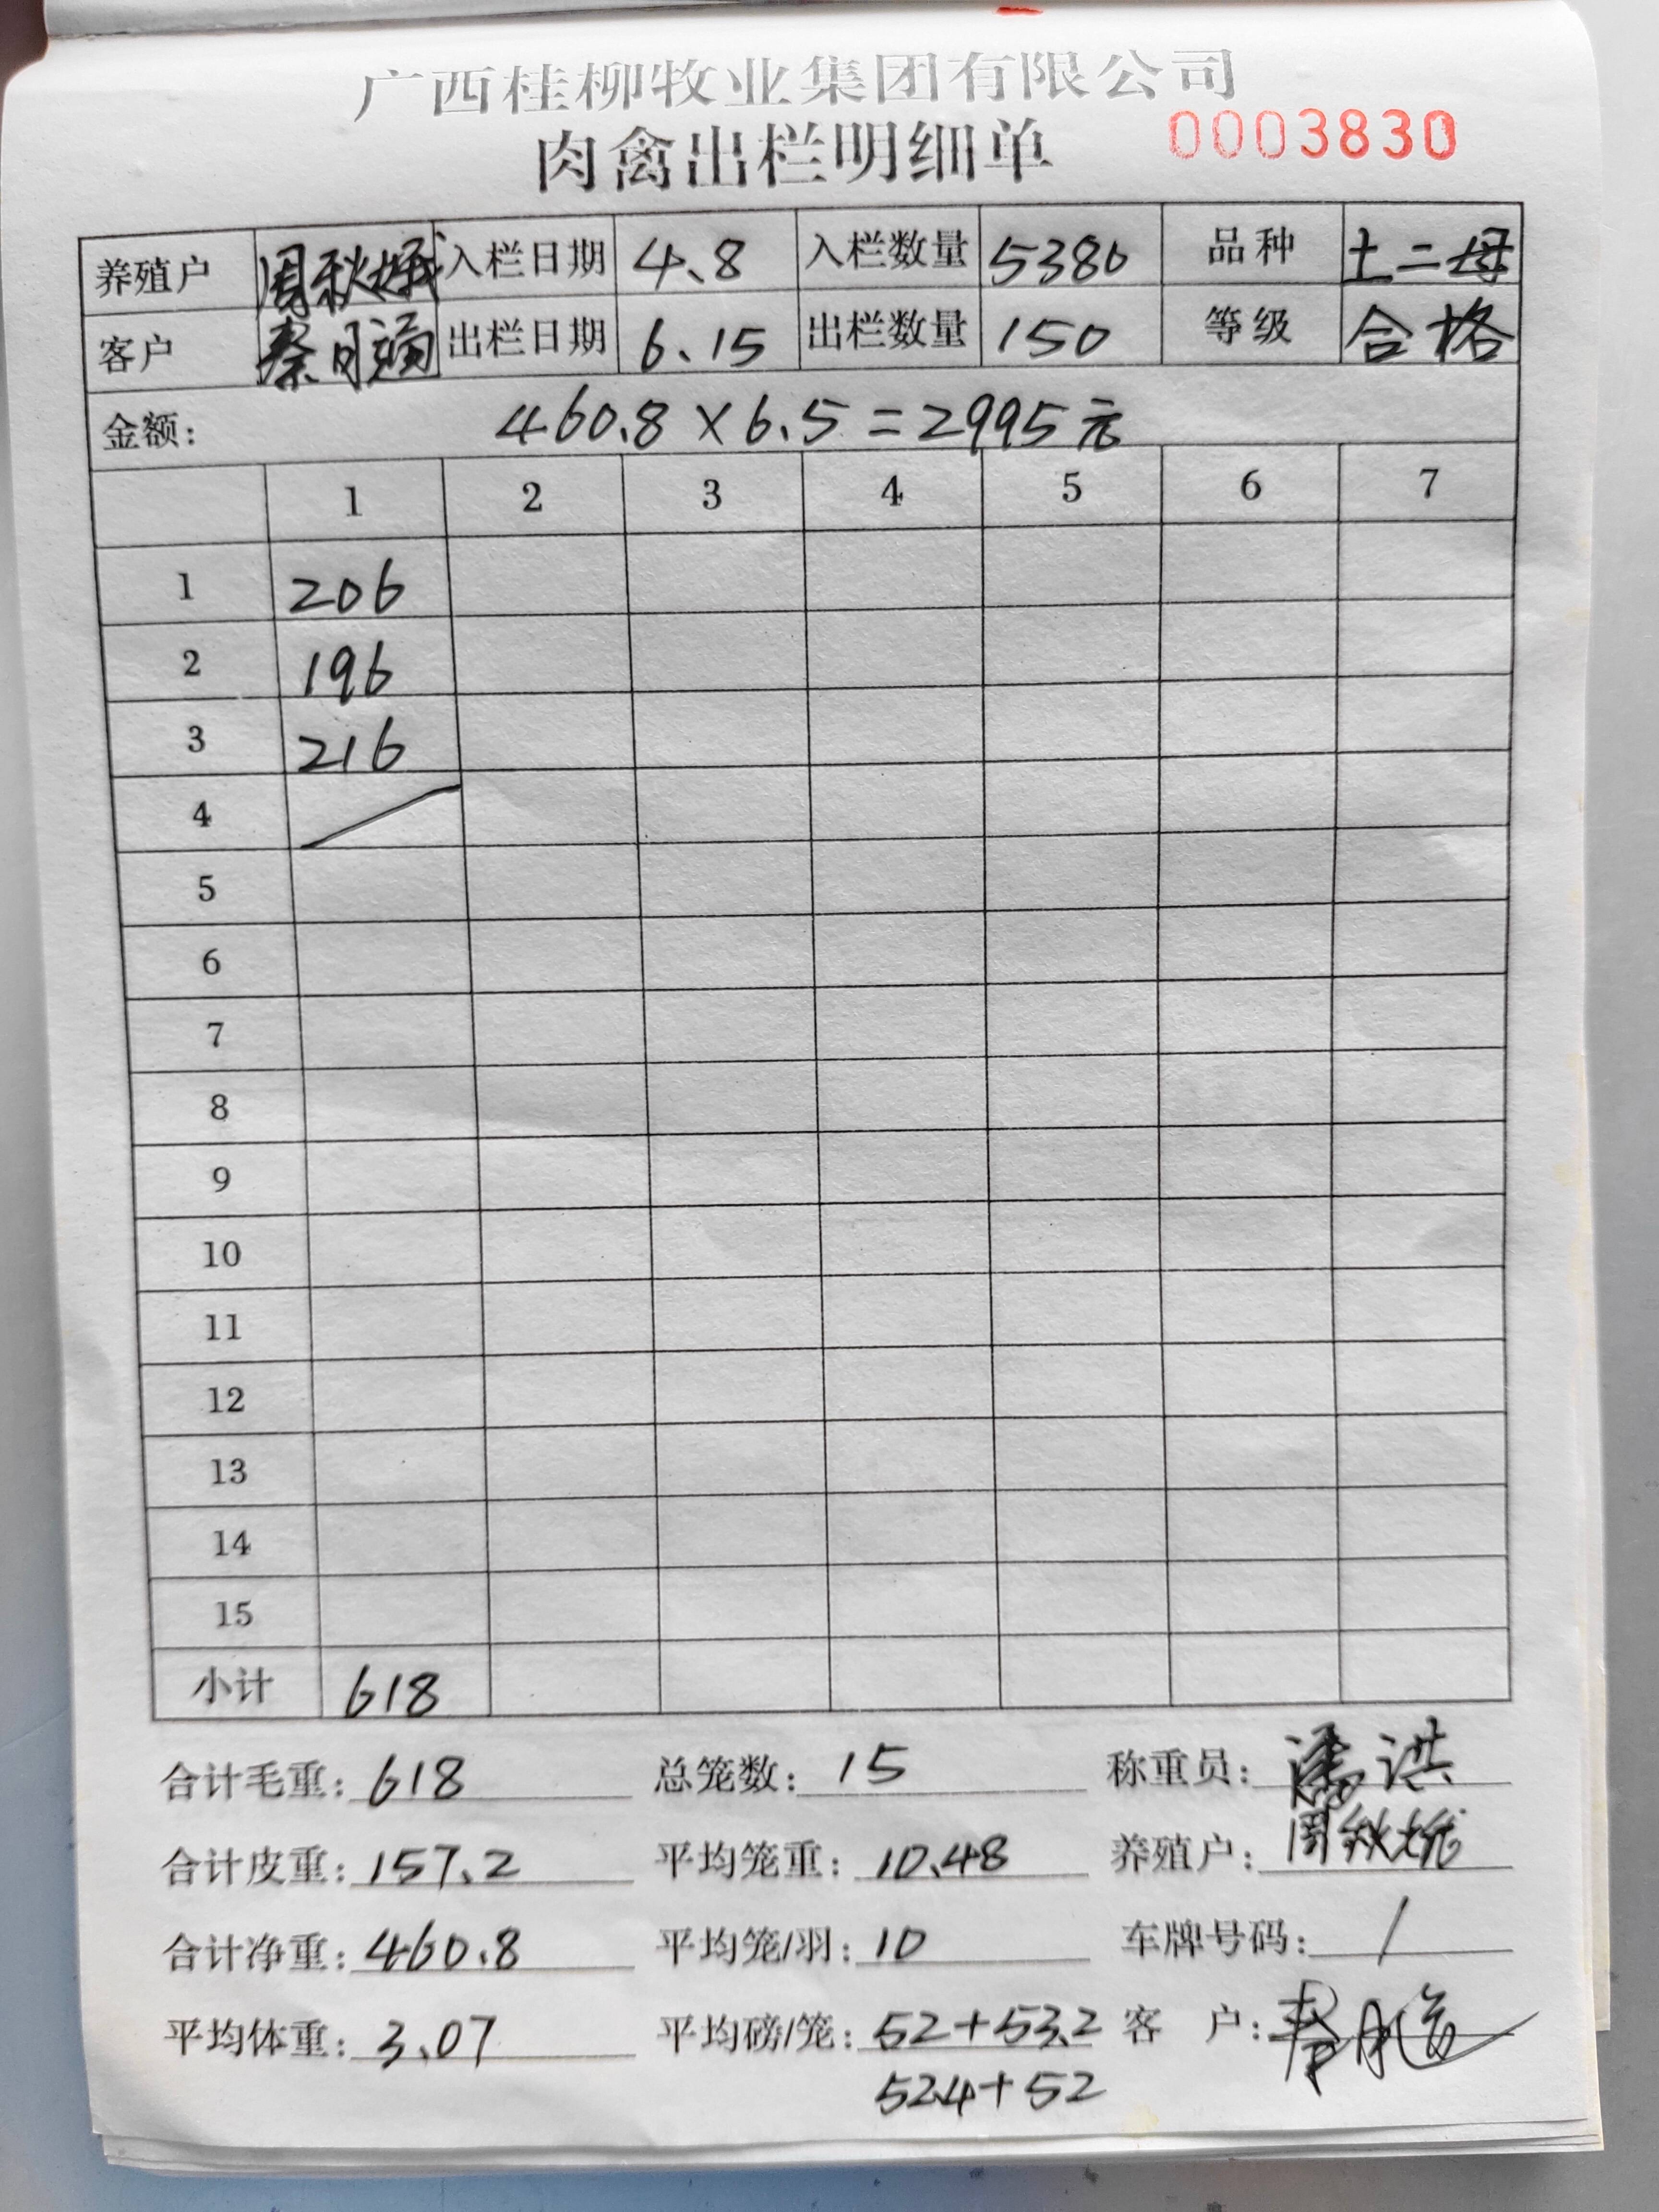 广西桂柳牧业集团有限公司
肉禽出栏明细单 0003830
养殖户 周秋娥 入栏日期 4.8 入栏数量 5380 品种 土二母
客户 秦月 出栏日期 6.15 出栏数量 150 等级 合格
金额: 460.8×6.5=2995元
1 2 3 4 5 6 7
1 206
2 196
3 216
4
5
6
7
8
9
10
11
12
13
14
15
小计 618
合计毛重: 618 总笼数: 15 称重员: 潘洪
合计皮重: 157.2 平均笼重: 10.48 养殖户: 周秋娥
合计净重: 460.8 平均笼/羽: 10 车牌号码: /
平均体重: 3.07 平均磅/笼: 52+53.2 客 户: 秦月
52.4+52